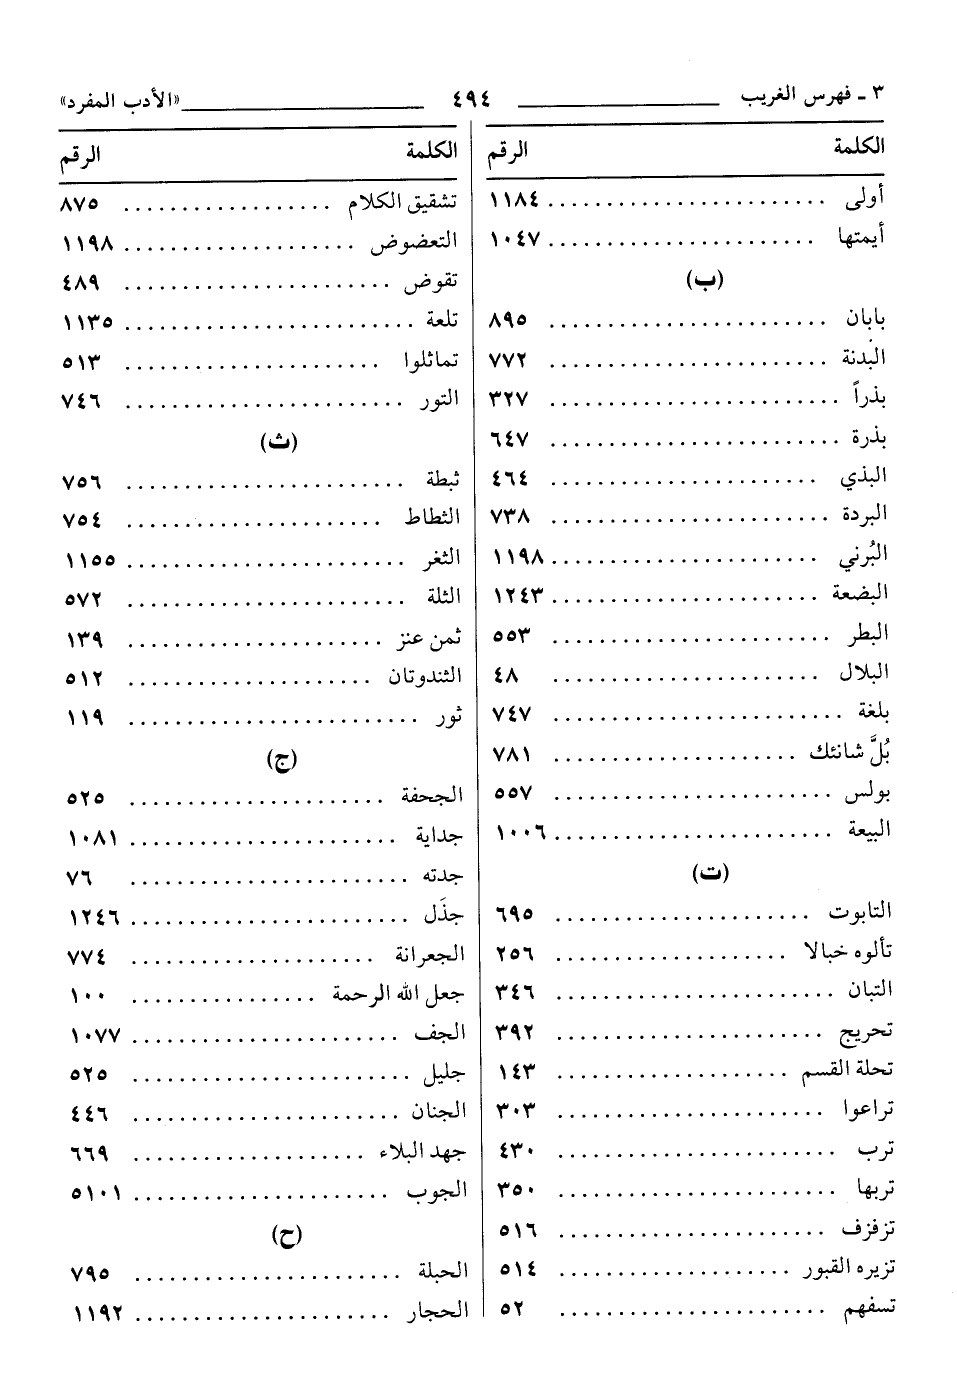 ٣ ـ فهرس الغريب ٤٩٤ «الأدب المفرد»
الكلمة الرقم
أولى ........................ ١١٨٤
أيمتها ....................... ١٠٤٧
(ب)
بابان ........................ ٨٩٥
البدنة ........................ ٧٧٢
بذراً ......................... ٣٢٧
بذرة ......................... ٦٤٧
البذي ....................... ٤٦٤
البردة ........................ ٧٣٨
البُرني ....................... ١١٩٨
البضعة ...................... ١٢٤٣
البطر ........................ ٥٥٣
البلال ....................... ٤٨
بلغة ......................... ٧٤٧
بُلَّ شانئك .................... ٧٨١
بولس ........................ ٥٥٧
البيعة ........................ ١٠٠٦
(ت)
التابوت ...................... ٦٩٥
تألوه خبالا .................... ٢٥٦
التبان ........................ ٣٤٦
تحريج ....................... ٣٩٢
تحلة القسم .................... ١٤٣
تراعوا ....................... ٣٠٣
ترب ........................ ٤٣٠
تربها ........................ ٣٥٠
تزفزف ...................... ٥١٦
تزيره القبور ................... ٥١٤
تسفهم ...................... ٥٢
الكلمة الرقم
تشقيق الكلام .................. ٨٧٥
التعضوض .................... ١١٩٨
تقوض ....................... ٤٨٩
تلعة ......................... ١١٣٥
تماثلوا ...................... ٥١٣
التور ........................ ٧٤٦
(ث)
ثبطة ........................ ٧٥٦
الثطاط ...................... ٧٥٤
الثغر ........................ ١١٥٥
الثلة ........................ ٥٧٢
ثمن عنز ...................... ١٣٩
الثندوتان ..................... ٥١٢
ثور ......................... ١١٩
(ج)
الجحفة ...................... ٥٢٥
جداية ....................... ١٠٨١
جدته ........................ ٧٦
جذَل ........................ ١٢٤٦
الجعرانة ..................... ٧٧٤
جعل الله الرحمة ................ ١٠٠
الجف ....................... ١٠٧٧
جليل ........................ ٥٢٥
الجنان ....................... ٤٤٦
جهد البلاء .................... ٦٦٩
الجوب ...................... ٥١٠١
(ح)
الحبلة ....................... ٧٩٥
الحجار ...................... ١١٩٢